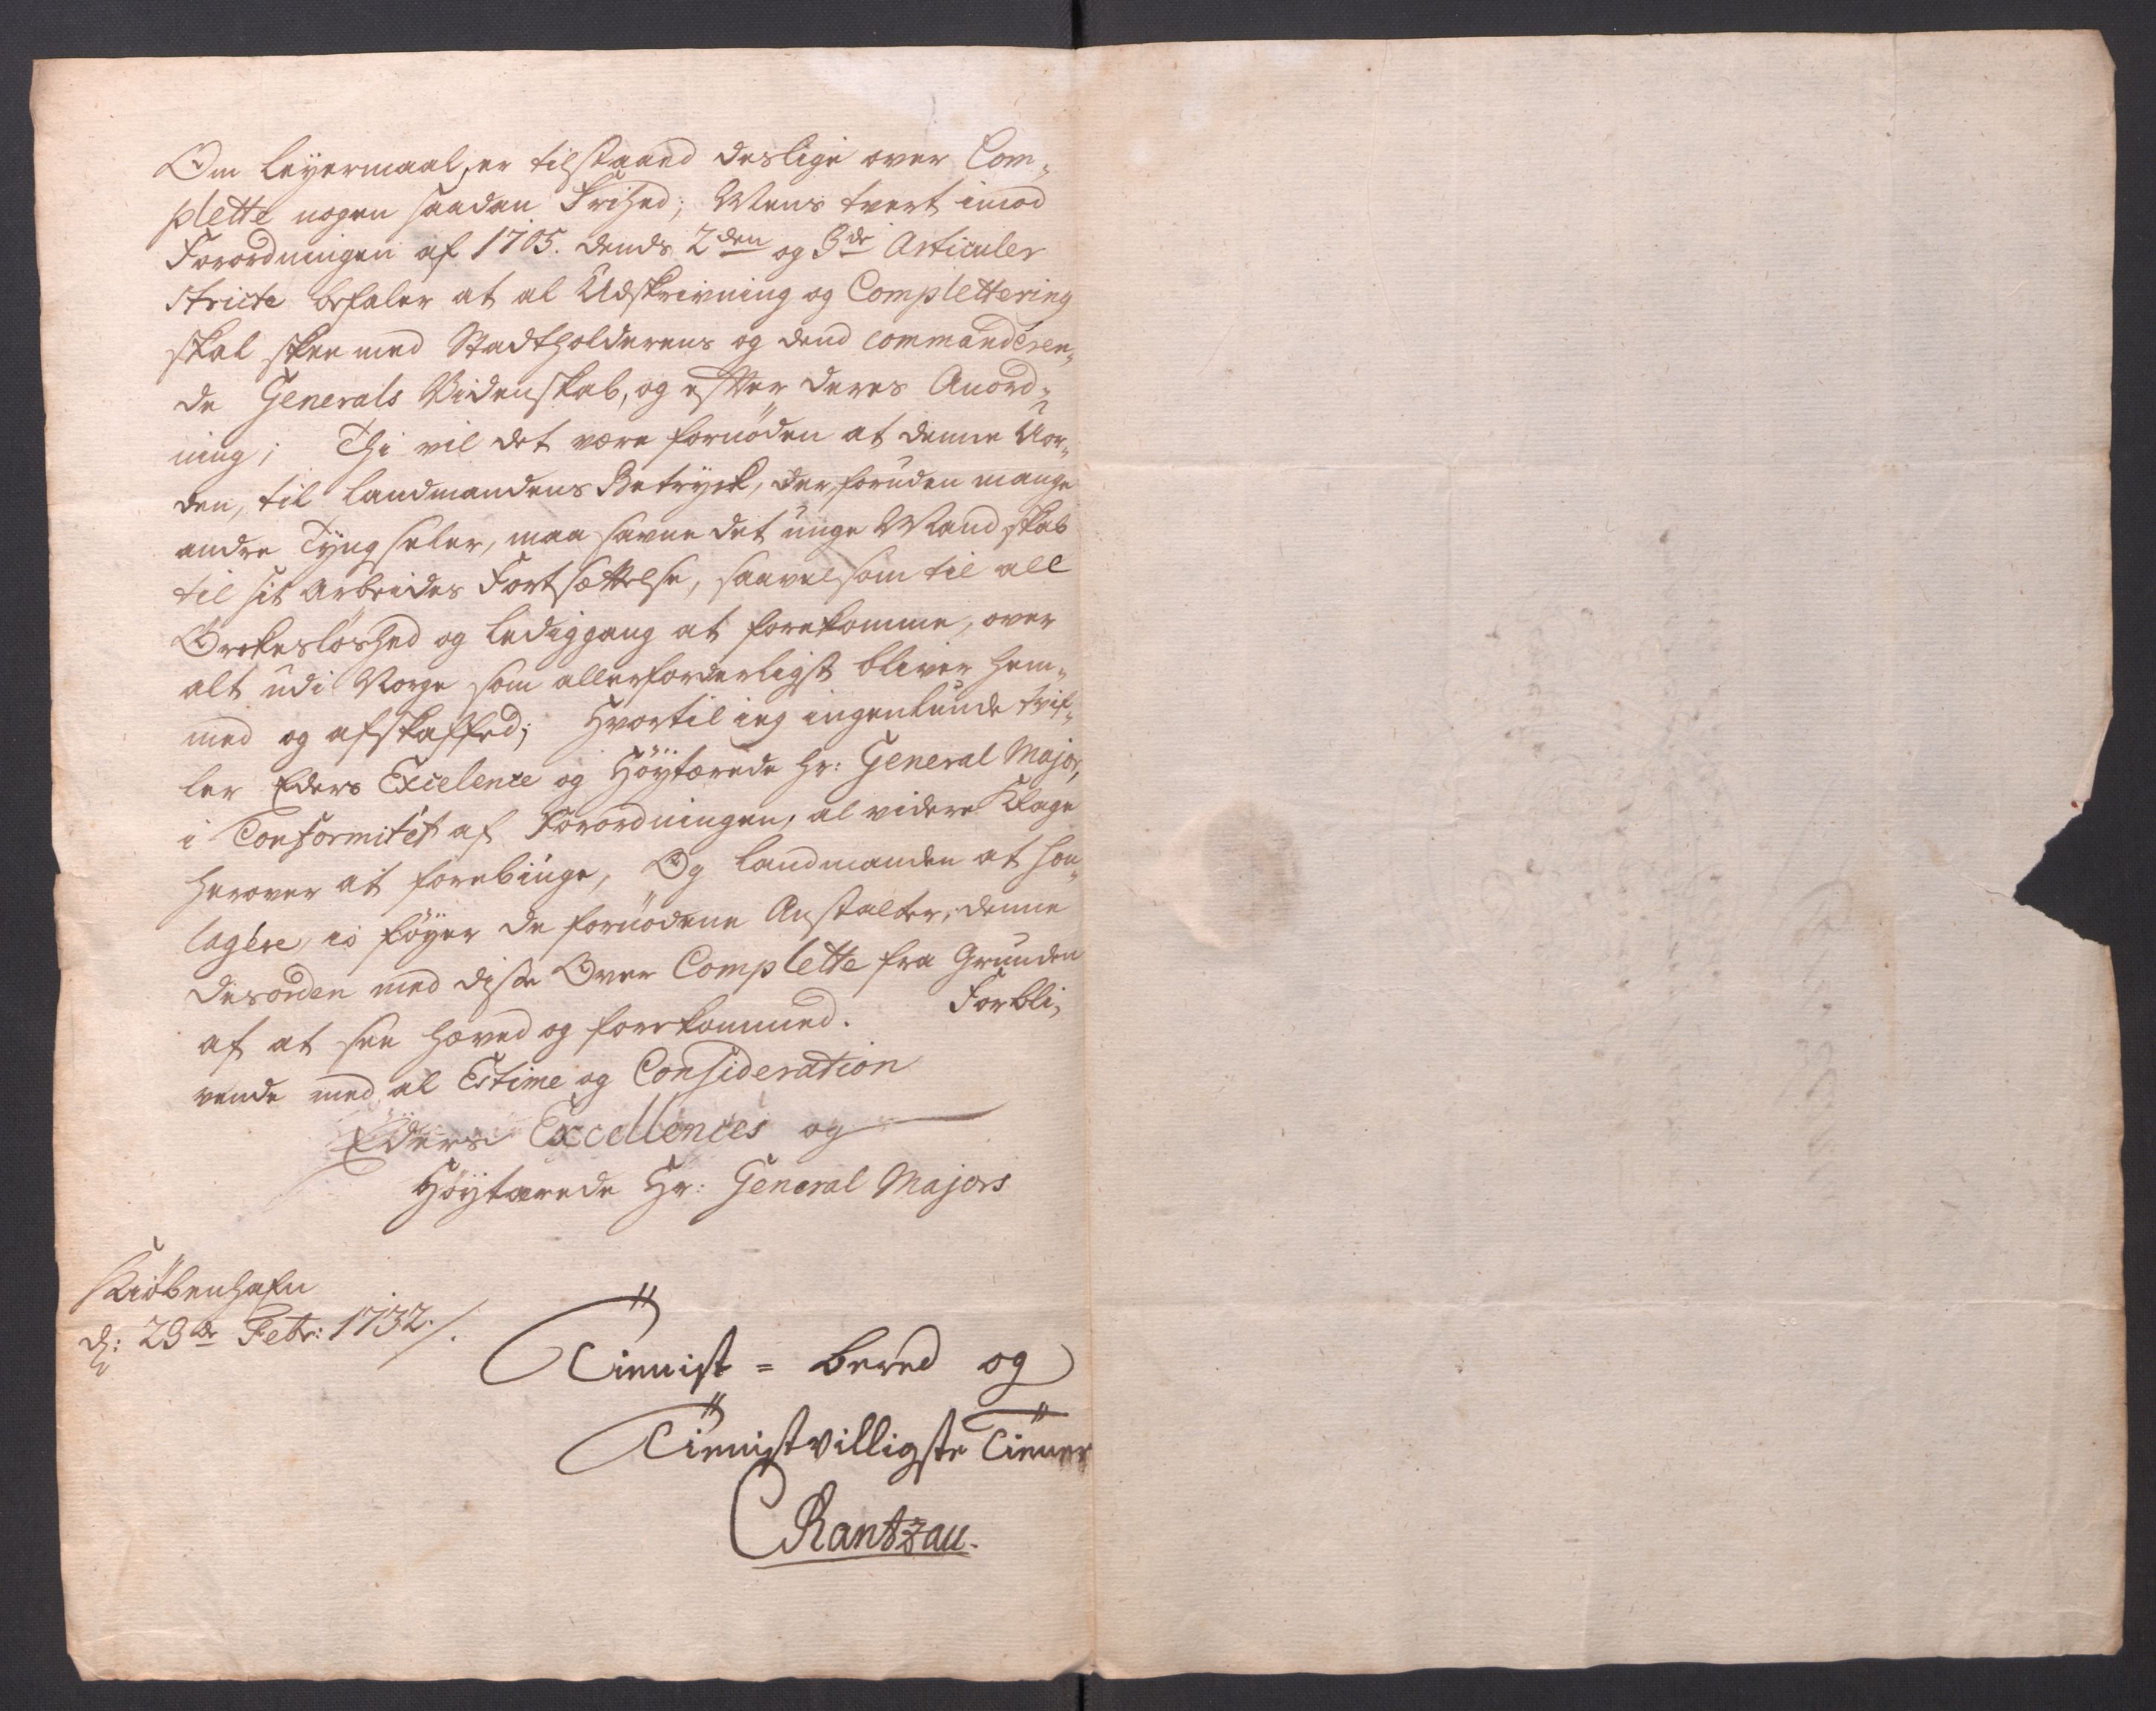 Om Leyermaal, er tilstaaed deslige over Com„
plette nogen saadan Frihed; Mens tvert imod
Forordningen af 1705. dends 2den og 3de Articuler
stricte befaler at al Udskrivning og Complettering
skal skee med Stadtholderens og dend commanderen„
de Generals Videnskab, og efter deres Anord„
ning; Thi vil det være fornöden at denne Uor„
den, til Landmandens Betryck, der foruden mange
andre Tyngseler, maa savne det unge Mandskab
til sit Arbeides Fortsættelse, saavelsom til all
Örckeslöshed og Lediggang at forekomme, over
alt udi Norge som allerforderligst bliver hem„
med og afskaffed; Hvortil ieg ingenlunde tvif„
ler Eders Excelence og Höytærede Hr: General Major,
i Conformitet af Forordningen, al videre Klage
herover at forebiuge, Og Landmanden at sou„
lagere, io föyer de fornödene Anstalter, denne
desorden med disse Over Complette fra Grunden
af at see hæved og forekommed. Forbli„
vende med al Estime og Consideration
Eders Excellences og
Höytærede Hr: General Majors
Kiöbenhafn
d: 23de Febr: 1732./.
Tienist = bered og
Tienistvilligste Tiener
CRantzau.